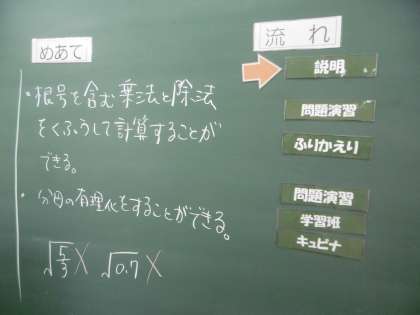 めあて
・根号を含む乗法と除法
をくふうして計算することが
できる。
・分母の有理化をすることができる。
√5/3 X √0.7 X
流れ
説明
問題演習
ふりかえり
問題演習
学習班
キュビナ